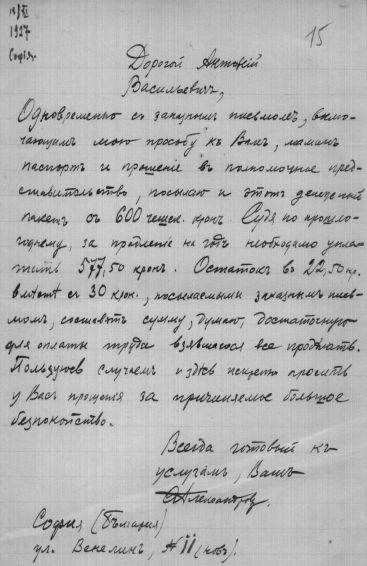 18/XI
1927
София.
15
Дорогой Антоній
Васильевичъ,
Одновременно съ заказнымъ письмомъ, вклю-
чающимъ мою просьбу къ Вамъ, мамин
паспортъ и прошеніе въ полномочное пред-
ставительство, посылаю и этотъ денежный
пакетъ съ 600 чешск. кронъ. Судя по прошло-
годнему, за продленіе на годъ необходимо упла-
тить 577,50 кронъ. Остатокъ въ 22,50 кр.
вмѣстѣ съ 30 крон., посылаемыми заказнымъ пись-
момъ, составятъ сумму, думаю, достаточную
для оплаты труда взявшагося все продѣлать.
Пользуюсь случаемъ и здѣсь просить
у Васъ прощенія за причиняемое большое
безпокойство.
Всегда готовый къ
услугамъ, Вашъ
Александров.
София (България)
ул. Венелинъ, № 11 (новъ).